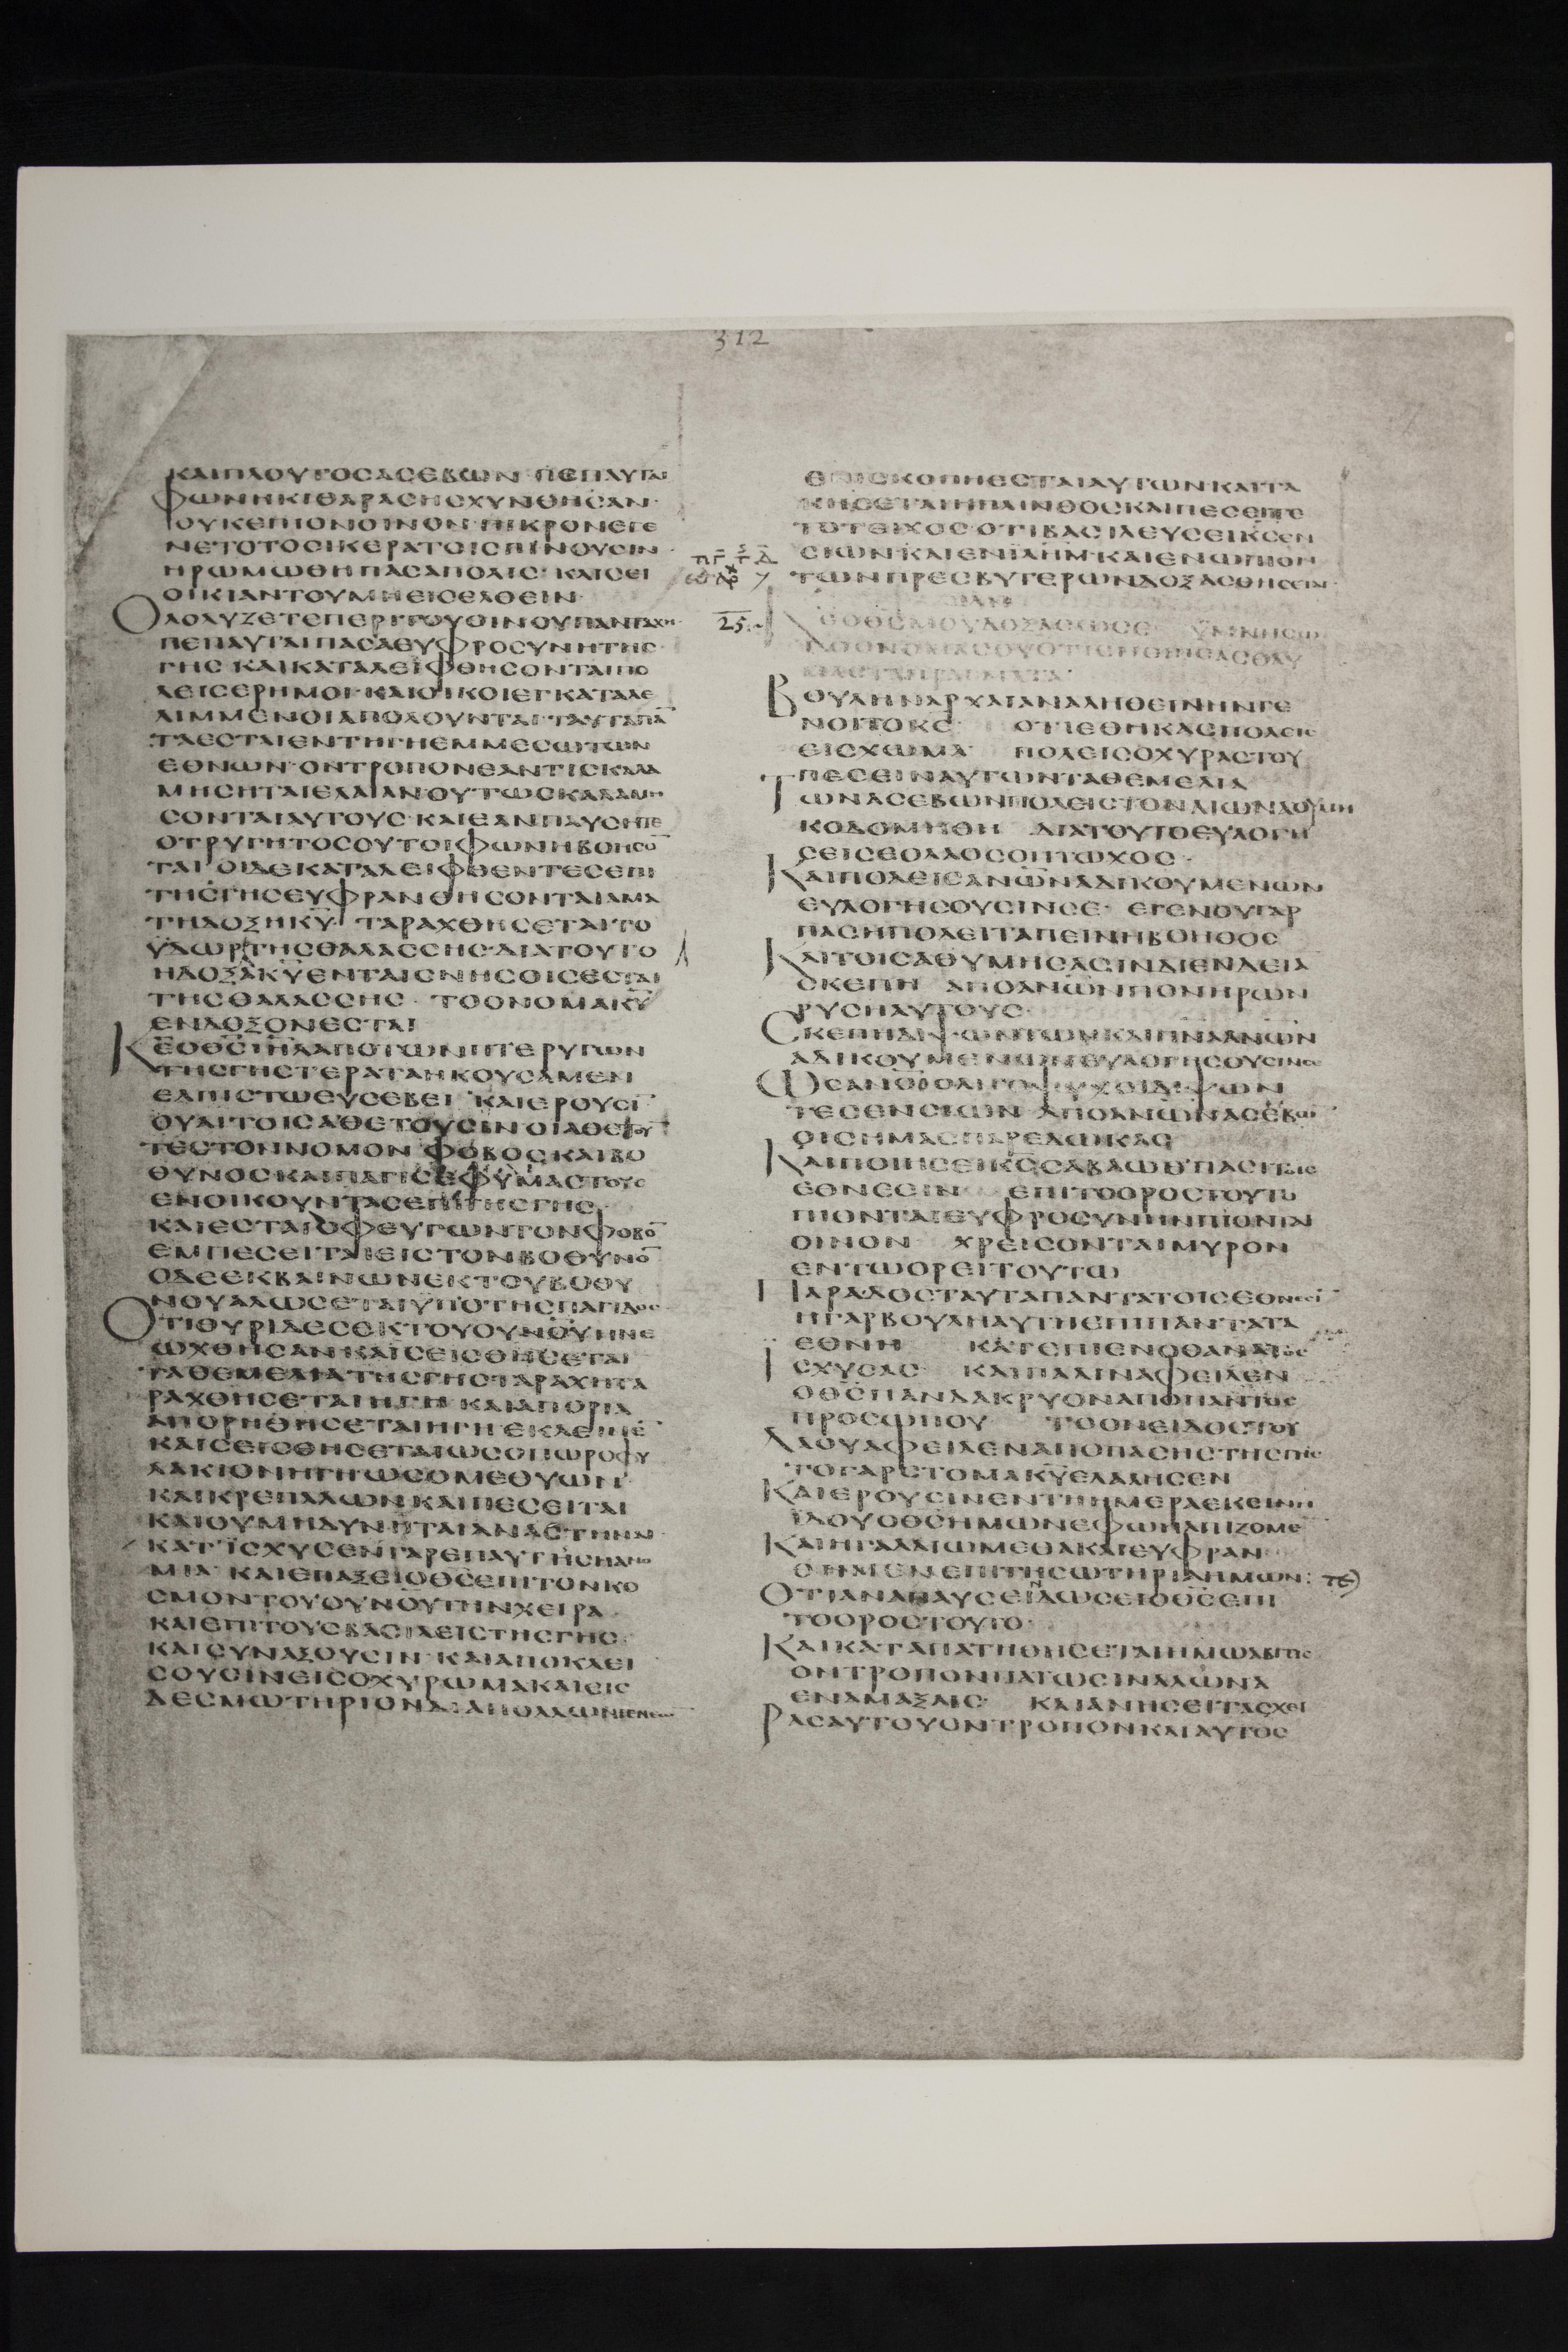 312
ΚΑΙΠΛΟΥΤΟΣΑΣΕΒΩΝ ΠΕΠΑΥΤΑΙ
ΦΩΝΗΚΙΘΑΡΑΣΗΣΧΥΝΘΗΣΑΝ
ΟΥΚΕΠΙΟΝΟΙΝΟΝ ΠΙΚΡΟΝΕΓΕ
ΝΕΤΟΤΟΣΙΚΕΡΑΤΟΙΣΠΙΝΟΥΣΙΝ
ΗΡΩΜΩΘΗΠΑΣΑΠΟΛΙΣ ΚΛΙΣΕΙ
ΟΙΚΙΑΝΤΟΥΜΗΕΙΣΕΛΘΕΙΝ
ΟΛΟΛΥΖΕΤΕΠΕΡΙΤΟΥΟΙΝΟΥΠΑΝΤΑΧΗ
ΠΕΠΑΥΤΑΙΠΑΣΑΕΥΦΡΟΣΥΝΗΤΗΣ
ΓΗΣ ΚΑΙΚΑΤΑΛΕΙΦΘΗΣΟΝΤΑΙΠΟ
ΛΕΙΣΕΡΗΜΟΙ ΚΑΙΟΙΚΟΙΕΓΚΑΤΑΛΕ
ΛΙΜΜΕΝΟΙΑΠΟΛΟΥΝΤΑΙ ΤΑΥΤΑΠΑ̅
ΤΑΕΣΤΑΙΕΝΤΗΓΗΕΜΜΕΣΩΤΩΝ
ΕΘΝΩΝ ΟΝΤΡΟΠΟΝΕΑΝΤΙΣΚΑΛΑ
ΜΗΣΗΤΑΙΕΛΑΙΑΝΟΥΤΩΣΚΑΛΑΜΗ
ΣΟΝΤΑΙΑΥΤΟΥΣ ΚΑΙΕΑΝΠΑΥΣΗΤΕ
ΟΤΡΥΓΗΤΟΣΟΥΤΟΙΦΩΝΗΒΟΗΣΟ̅
ΤΑΙ ΟΙΔΕΚΑΤΑΛΕΙΦΘΕΝΤΕΣΕΠΙ
ΤΗΣΓΗΣΕΥΦΡΑΝΘΗΣΟΝΤΑΙΑΜΑ
ΤΗΔΟΞΗΚΥ̅ ΤΑΡΑΧΘΗΣΕΤΑΙΤΟ
ΥΔΩΡΤΗΣΘΑΛΑΣΣΗΣ ΔΙΑΤΟΥΤΟ
ΗΔΟΞΑΚΥ̅ΕΝΤΑΙΣΝΗΣΟΙΣΕΣΤΑΙ
ΤΗΣΘΑΛΑΣΣΗΣ ΤΟΟΝΟΜΑΚΥ̅
ΕΝΔΟΞΟΝΕΣΤΑΙ
ΚΕ̅ΟΘΣ̅ΙΗΛ̅ΑΠΟΤΩΝΠΤΕΡΥΓΩΝ
ΤΗΣΓΗΣΤΕΡΑΤΑΗΚΟΥΣΑΜΕΝ
ΕΛΠΙΣΤΩΕΥΣΕΒΕΙ ΚΑΙΕΡΟΥΣΙ̅
ΟΥΑΙΤΟΙΣΑΘΕΤΟΥΣΙΝΟΙΑΘΕΤΟΥ
ΤΕΣΤΟΝΝΟΜΟΝ ΦΟΒΟΣΚΑΙΒΟ
ΘΥΝΟΣΚΑΙΠΑΓΙΣΕΦΥΜΑΣΤΟΥΣ
ΕΝΟΙΚΟΥΝΤΑΣΕΠΙΤΗΣΓΗΣ
ΚΑΙΕΣΤΑΙΟΦΕΥΓΩΝΤΟΝΦΟΒΟ̅
ΕΜΠΕΣΕΙΤΑΙΕΙΣΤΟΝΒΟΘΥΝΟ̅
ΟΔΕΕΚΒΑΙΝΩΝΕΚΤΟΥΒΟΘΥ
ΝΟΥΑΛΩΣΕΤΑΙΥΠΟΤΗΣΠΑΓΙΔΟΣ
ΟΤΙΘΥΡΙΔΕΣΕΚΤΟΥΟΥΝΟΥΗΝΕ
ΩΧΘΗΣΑΝΚΑΙΣΕΙΣΘΗΣΕΤΑΙ
ΤΑΘΕΜΕΛΙΑΤΗΣΓΗΣΤΑΡΑΧΗΤΑ
ΡΑΧΘΗΣΕΤΑΙΗΓΗ ΚΑΙΑΠΟΡΙΑ
ΑΠΟΡΗΘΗΣΕΤΑΙΗΓΗ ΕΚΛΕΙΝΕ
ΚΑΙΣΕΙΣΘΗΣΕΤΑΙΩΣΟΠΩΡΟΦΥ
ΛΑΚΙΟΝΗΓΗΩΣΟΜΕΘΥΩΝ
ΚΑΙΚΡΕΠΑΛΩΝΚΑΙΠΕΣΕΙΤΑΙ
ΚΑΙΟΥΜΗΔΥΝΗΤΑΙΑΝΑΣΤΗΝΑΙ
ΚΑΤΙΣΧΥΣΕΝΓΑΡΕΠΑΥΤΗΣΗΑΝΟ
ΜΙΑ ΚΑΙΕΠΑΞΕΙΟΘΣ̅ΕΠΙΤΟΝΚΟ
ΣΜΟΝΤΟΥΟΥΝΟΥΤΗΝΧΕΙΡΑ
ΚΑΙΕΠΙΤΟΥΣΒΑΣΙΛΕΙΣΤΗΣΓΗΣ
ΚΑΙΣΥΝΑΞΟΥΣΙΝ ΚΑΙΑΠΟΚΛΕΙ
ΣΟΥΣΙΝΕΙΣΟΧΥΡΩΜΑΚΑΙΕΙΣ
ΔΕΣΜΩΤΗΡΙΟΝ
ΕΠΙΣΚΟΠΗΕΣΤΑΙΑΥΤΩΝΚΑΙΤΑ
ΚΗΣΕΤΑΙΗΠΛΙΝΘΟΣΚΑΙΠΕΣΕΙΤΕ
ΤΟΤΕΙΧΟΣΟΤΙΒΑΣΙΛΕΥΣΕΙΚΣ̅ΕΝ
ΣΙΩΝΚΑΙΕΝΙΛΗΜ̅ΚΑΙΕΝΩΠΙΟΝ
ΤΩΝΠΡΕΣΒΥΤΕΡΩΝΔΟΞΑΣΘΗΣΕΤΑΙ
25
ΚΕ̅ΟΘΣ̅ΜΟΥΔΟΞΑΣΩΣΕ ΥΜΝΗΣΩ
ΤΟΟΝΟΜΑΣΟΥΟΤΙΕΠΟΙΗΣΑΣΘΑΥ
ΜΑΣΤΑΠΡΑΓΜΑΤΑ
ΒΟΥΛΗΝΑΡΧΑΙΑΝΑΛΗΘΕΙΝΗΝΓΕ
ΝΟΙΤΟΚΕ̅ ΟΤΙΕΘΗΚΑΣΠΟΛΕΙΣ
ΕΙΣΧΩΜΑ ΠΟΛΕΙΣΟΧΥΡΑΣΤΟΥ
ΠΕΣΕΙΝΑΥΤΩΝΤΑΘΕΜΕΛΙΑ
ΤΩΝΑΣΕΒΩΝΠΟΛΕΙΣΤΟΝΑΙΩΝΑΟΥΜΗ
ΚΟΔΟΜΗΘΗ ΔΙΑΤΟΥΤΟΕΥΛΟΓΗ
ΣΕΙΣΕΟΛΑΟΣΟΠΤΩΧΟΣ
ΚΑΙΠΟΛΕΙΣΑΝΩ̅ΝΑΔΙΚΟΥΜΕΝΩΝ
ΕΥΛΟΓΗΣΟΥΣΙΝΣΕ ΕΓΕΝΟΥΓΑΡ
ΠΑΣΗΠΟΛΕΙΤΑΠΕΙΝΗΒΟΗΘΟΣ
ΚΑΙΤΟΙΣΑΘΥΜΗΣΑΣΙΝΔΙΕΝΔΕΙΑ
ΣΚΕΠΗ ΑΠΟΑΝΩ̅ΝΠΟΝΗΡΩΝ
ΡΥΣΗΑΥΤΟΥΣ
ΣΚΕΠΗΔΙΨΩΝΤΩΝΚΑΙΠΝΑ̅ΑΝΩ̅Ν
ΑΔΙΚΟΥΜΕΝΩΝΕΥΛΟΓΗΣΟΥΣΙΝΣΕ
ΩΣΑΝΟΙΟΛΙΓΟΨΥΧΟΙΔΙΨΩΝ
ΤΕΣΕΝΣΙΩΝ ΑΠΟΑΝΩ̅ΝΑΣΕΒΩΝ
ΟΙΣΗΜΑΣΠΑΡΕΔΩΚΑΣ
ΚΑΙΠΟΙΗΣΕΙΚΣ̅ΣΑΒΑΩΘΠΑΣΙΤΟΙΣ
ΕΘΝΕΣΙΝ ΕΠΙΤΟΟΡΟΣΤΟΥΤΟ
ΠΙΟΝΤΑΙΕΥΦΡΟΣΥΝΗΝΠΙΟΝΤΑΙ
ΟΙΝΟΝ ΧΡΕΙΣΟΝΤΑΙΜΥΡΟΝ
ΕΝΤΩΟΡΕΙΤΟΥΤΩ
ΠΑΡΑΔΟΣΤΑΥΤΑΠΑΝΤΑΤΟΙΣΕΘΝΕΣΙ̅
ΗΓΑΡΒΟΥΛΗΑΥΤΗΕΠΙΠΑΝΤΑΤΑ
ΕΘΝΗ ΚΑΤΕΠΙΕΝΟΘΑΝΑΤΟΣ
ΙΣΧΥΣΑΣ ΚΑΙΠΑΛΙΝΑΦΕΙΛΕΝ
ΟΘΣ̅ΠΑΝΔΑΚΡΥΟΝΑΠΟΠΑΝΤΟΣ
ΠΡΟΣΩΠΟΥ ΤΟΟΝΕΙΔΟΣΤΟΥ
ΛΑΟΥΑΦΕΙΛΕΝΑΠΟΠΑΣΗΣΤΗΣΓΗΣ
ΤΟΓΑΡΣΤΟΜΑΚΥ̅ΕΛΑΛΗΣΕΝ
ΚΑΙΕΡΟΥΣΙΝΕΝΤΗΗΜΕΡΑΕΚΕΙΝΗ
ΙΔΟΥΟΘΣ̅ΗΜΩΝΕΦΩΗΛΠΙΖΟΜΕ̅
ΚΑΙΗΓΑΛΛΙΩΜΕΘΑΚΑΙΕΥΦΡΑΝ
ΘΗΜΕΝΕΠΙΤΗΣΩΤΗΡΙΑΗΜΩΝ
ΟΤΙΑΝΑΠΑΥΣΕΙΝΔΩΣΕΙΟΘΣ̅ΕΠΙ
ΤΟΟΡΟΣΤΟΥΤΟ
ΚΑΙΚΑΤΑΠΑΤΗΘΗΣΕΤΑΙΗΜΩΑΒΙΤΙΣ
ΟΝΤΡΟΠΟΝΠΑΤΩΣΙΝΑΛΩΝΑ
ΕΝΑΜΑΞΑΙΣ ΚΑΙΑΝΗΣΕΙΤΑΣΧΕΙ
ΡΑΣΑΥΤΟΥΟΝΤΡΟΠΟΝΚΑΙΑΥΤΟΣ